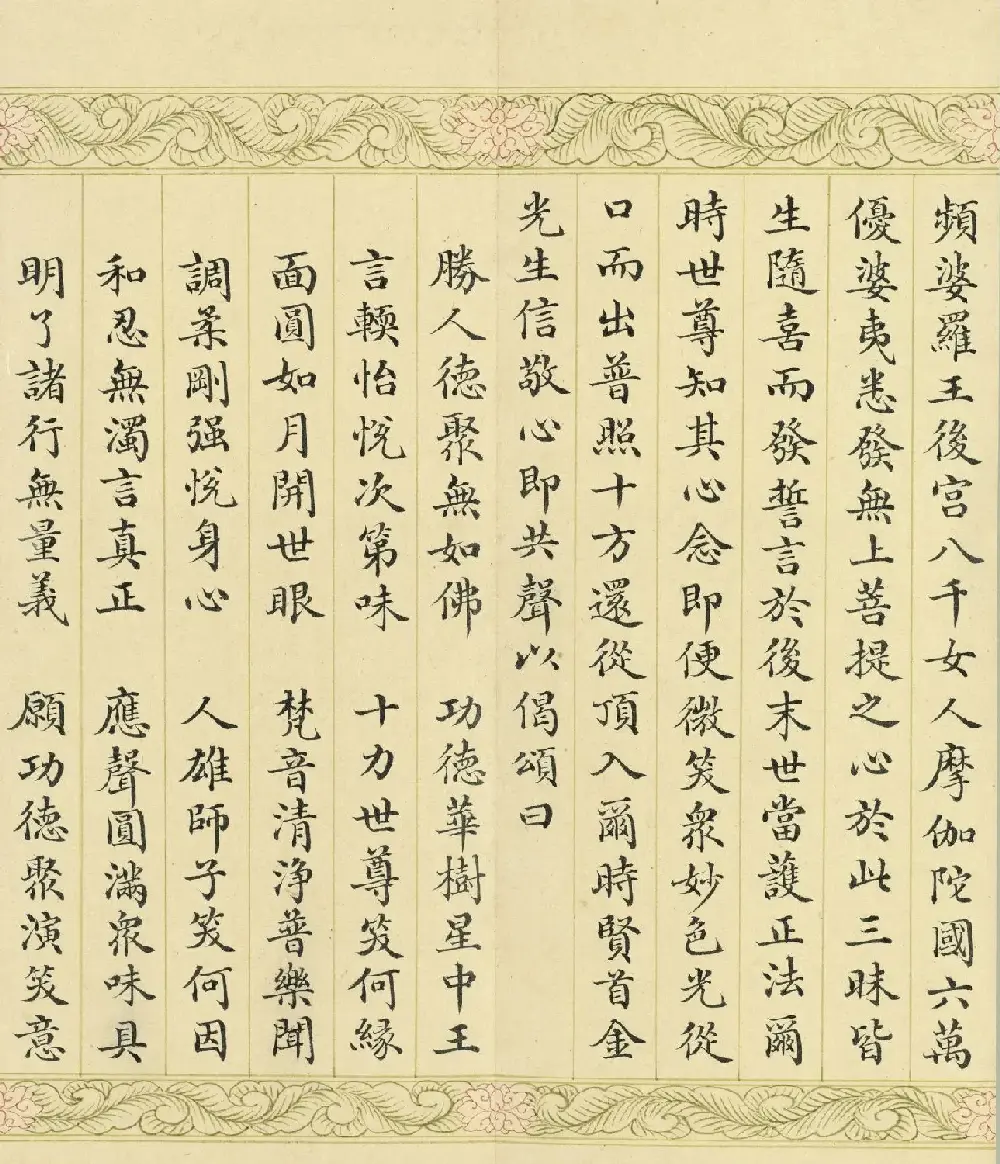 頻婆羅王後宮八千女人摩伽陀國六萬
優婆夷悉發無上菩提之心於此三昧皆
生隨喜而發誓言於後末世當護正法爾
時世尊知其心念即便微笑衆妙色光從
口而出普照十方還從頂入爾時賢首金
光生信敬心即共聲以偈頌曰
勝人德聚無如佛　功德華樹星中王
言輭怡悅次第味　十力世尊笑何緣
面圓如月開世眼　梵音清淨普樂聞
調柔剛强悅身心　人雄師子笑何因
和忍無濁言真正　應聲圓滿衆味具
明了諸行無量義　願功德聚演笑意